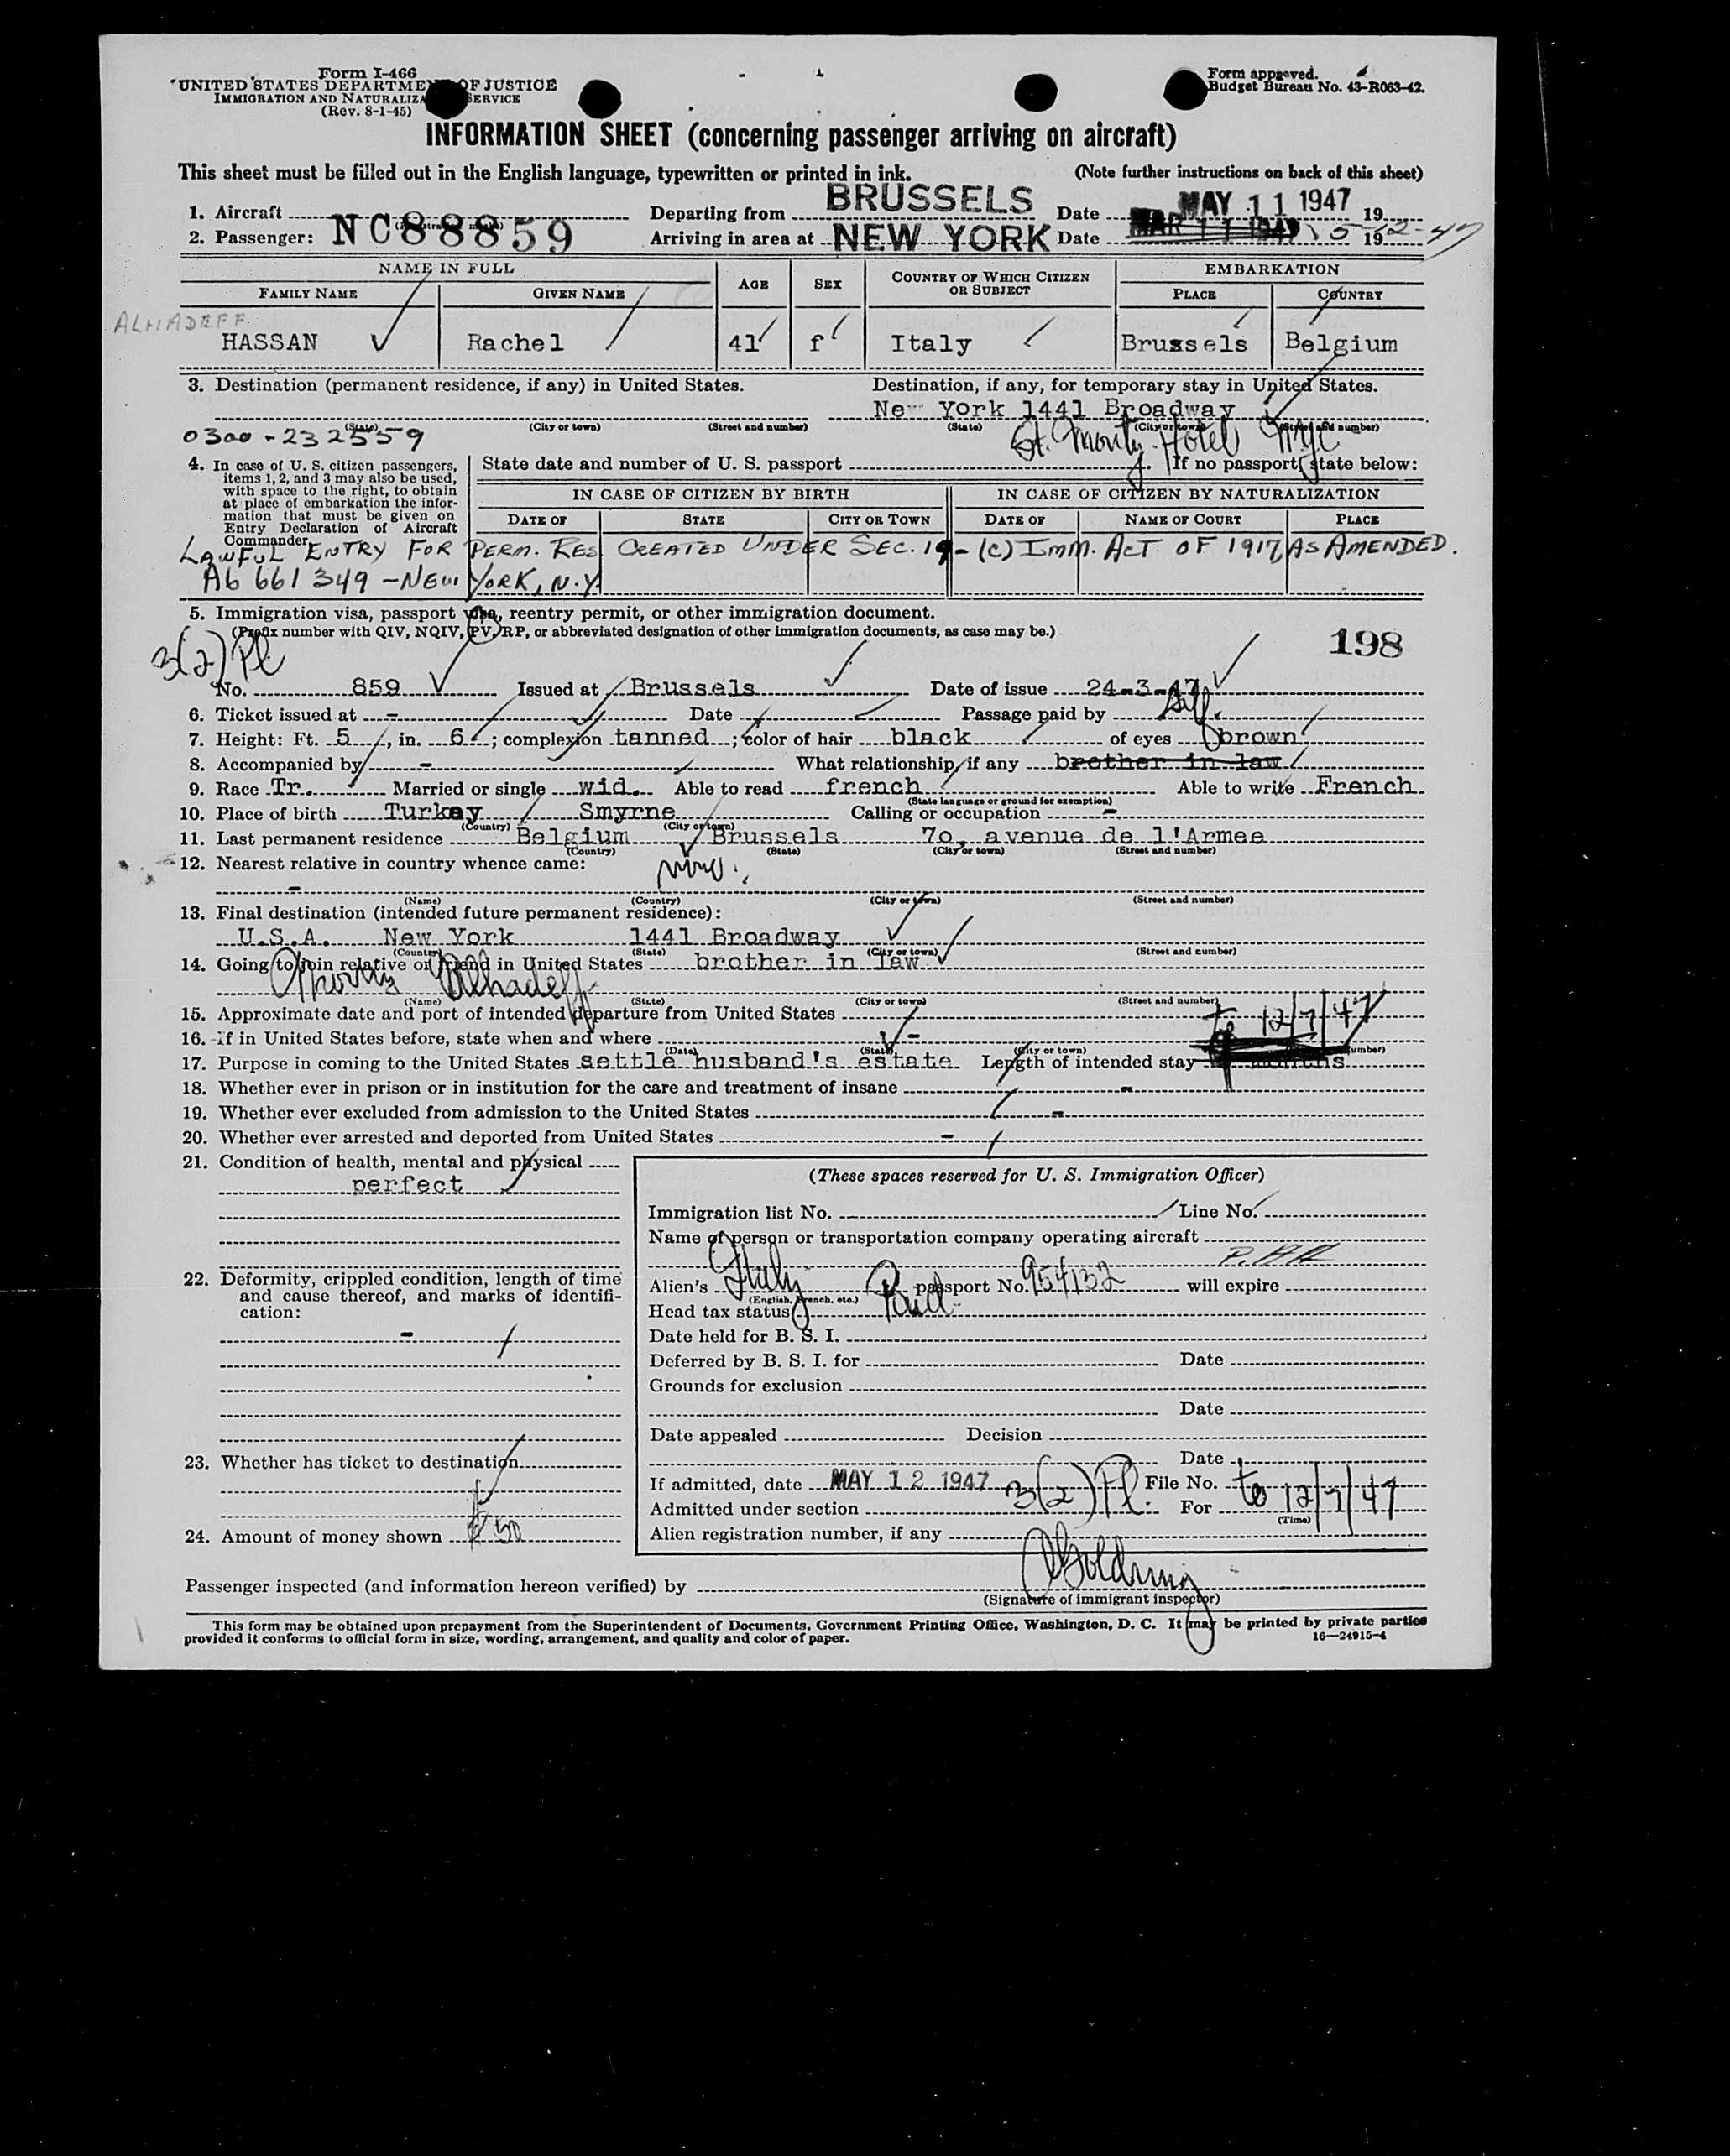 Form I-466
UNITED STATES DEPARTMENT OF JUSTICE
IMMIGRATION AND NATURALIZATION SERVICE
(Rev. 8-1-45)
Form approved.
Budget Bureau No. 43-R063-42.
INFORMATION SHEET (concerning passenger arriving on aircraft)
This sheet must be filled out in the English language, typewritten or printed in ink. (Note further instructions on back of this sheet)
1. Aircraft Departing from BRUSSELS Date MAY 11 1947 19
2. Passenger: NC88859 Arriving in area at NEW YORK Date MAR 11 1947 5-12-47 19
NAME IN FULL AGE SEX COUNTRY OF WHICH CITIZEN OR SUBJECT EMBARKATION
FAMILY NAME GIVEN NAME PLACE COUNTRY
ALHADEFF
HASSAN Rachel 41 f Italy Brussels Belgium
3. Destination (permanent residence, if any) in United States. Destination, if any, for temporary stay in United States.
New York 1441 Broadway
(State) (City or town) (Street and number) (State) (City or town) (Street and number)
0300-232559 St. Hotel NYC
4. In case of U. S. citizen passengers, items 1, 2, and 3 may also be used, with space to the right, to obtain at place of embarkation the information that must be given on Entry Declaration of Aircraft Commander.
State date and number of U. S. passport If no passport, state below:
IN CASE OF CITIZEN BY BIRTH IN CASE OF CITIZEN BY NATURALIZATION
DATE OF STATE CITY OR TOWN DATE OF NAME OF COURT PLACE
LAWFUL ENTRY FOR PERM. RES CREATED UNDER SEC. 19-(C) IMM. ACT OF 1917, AS AMENDED.
A6 661 349 - NEW YORK, N.Y.
5. Immigration visa, passport visa, reentry permit, or other immigration document.
(Prefix number with QIV, NQIV, PV, RP, or abbreviated designation of other immigration documents, as case may be.)
198
3(2) Pl
No. 859 Issued at Brussels Date of issue 24-3-47
6. Ticket issued at - Date Passage paid by self.
7. Height: Ft. 5, in. 6; complexion tanned; color of hair black of eyes brown
8. Accompanied by - What relationship, if any brother in law
9. Race Tr. Married or single wid. Able to read french Able to write French
(State language or ground for exemption)
10. Place of birth Turkey Smyrne Calling or occupation -
(Country) (City or town)
11. Last permanent residence Belgium Brussels 70, avenue de l'Armee
(Country) (State) (City or town) (Street and number)
12. Nearest relative in country whence came: none.
-
(Name) (Country) (City or town) (Street and number)
13. Final destination (intended future permanent residence):
U.S.A. New York 1441 Broadway
(Country) (State) (City or town) (Street and number)
14. Going to join relative or friend in United States brother in law
Alhadeff
(Name) (State) (City or town) (Street and number)
15. Approximate date and port of intended departure from United States to 12/7/47
16. If in United States before, state when and where -
(Date) (State) (City or town) (Street and number)
17. Purpose in coming to the United States settle husband's estate Length of intended stay months
18. Whether ever in prison or in institution for the care and treatment of insane -
19. Whether ever excluded from admission to the United States -
20. Whether ever arrested and deported from United States -
21. Condition of health, mental and physical
perfect
22. Deformity, crippled condition, length of time and cause thereof, and marks of identification:
-
23. Whether has ticket to destination
24. Amount of money shown $50
(These spaces reserved for U. S. Immigration Officer)
Immigration list No. Line No.
Name of person or transportation company operating aircraft
Alien's Italy passport No. 954132 will expire
(English, French, etc.)
Head tax status Paid
Date held for B. S. I.
Deferred by B. S. I. for Date
Grounds for exclusion
Date
Date appealed Decision
Date
If admitted, date MAY 12 1947 File No.
Admitted under section 3(2) Pl. For to 12/7/47
(Time)
Alien registration number, if any
Passenger inspected (and information hereon verified) by
(Signature of immigrant inspector)
This form may be obtained upon prepayment from the Superintendent of Documents, Government Printing Office, Washington, D. C. It may be printed by private parties
provided it conforms to official form in size, wording, arrangement, and quality and color of paper. 16—24915-4